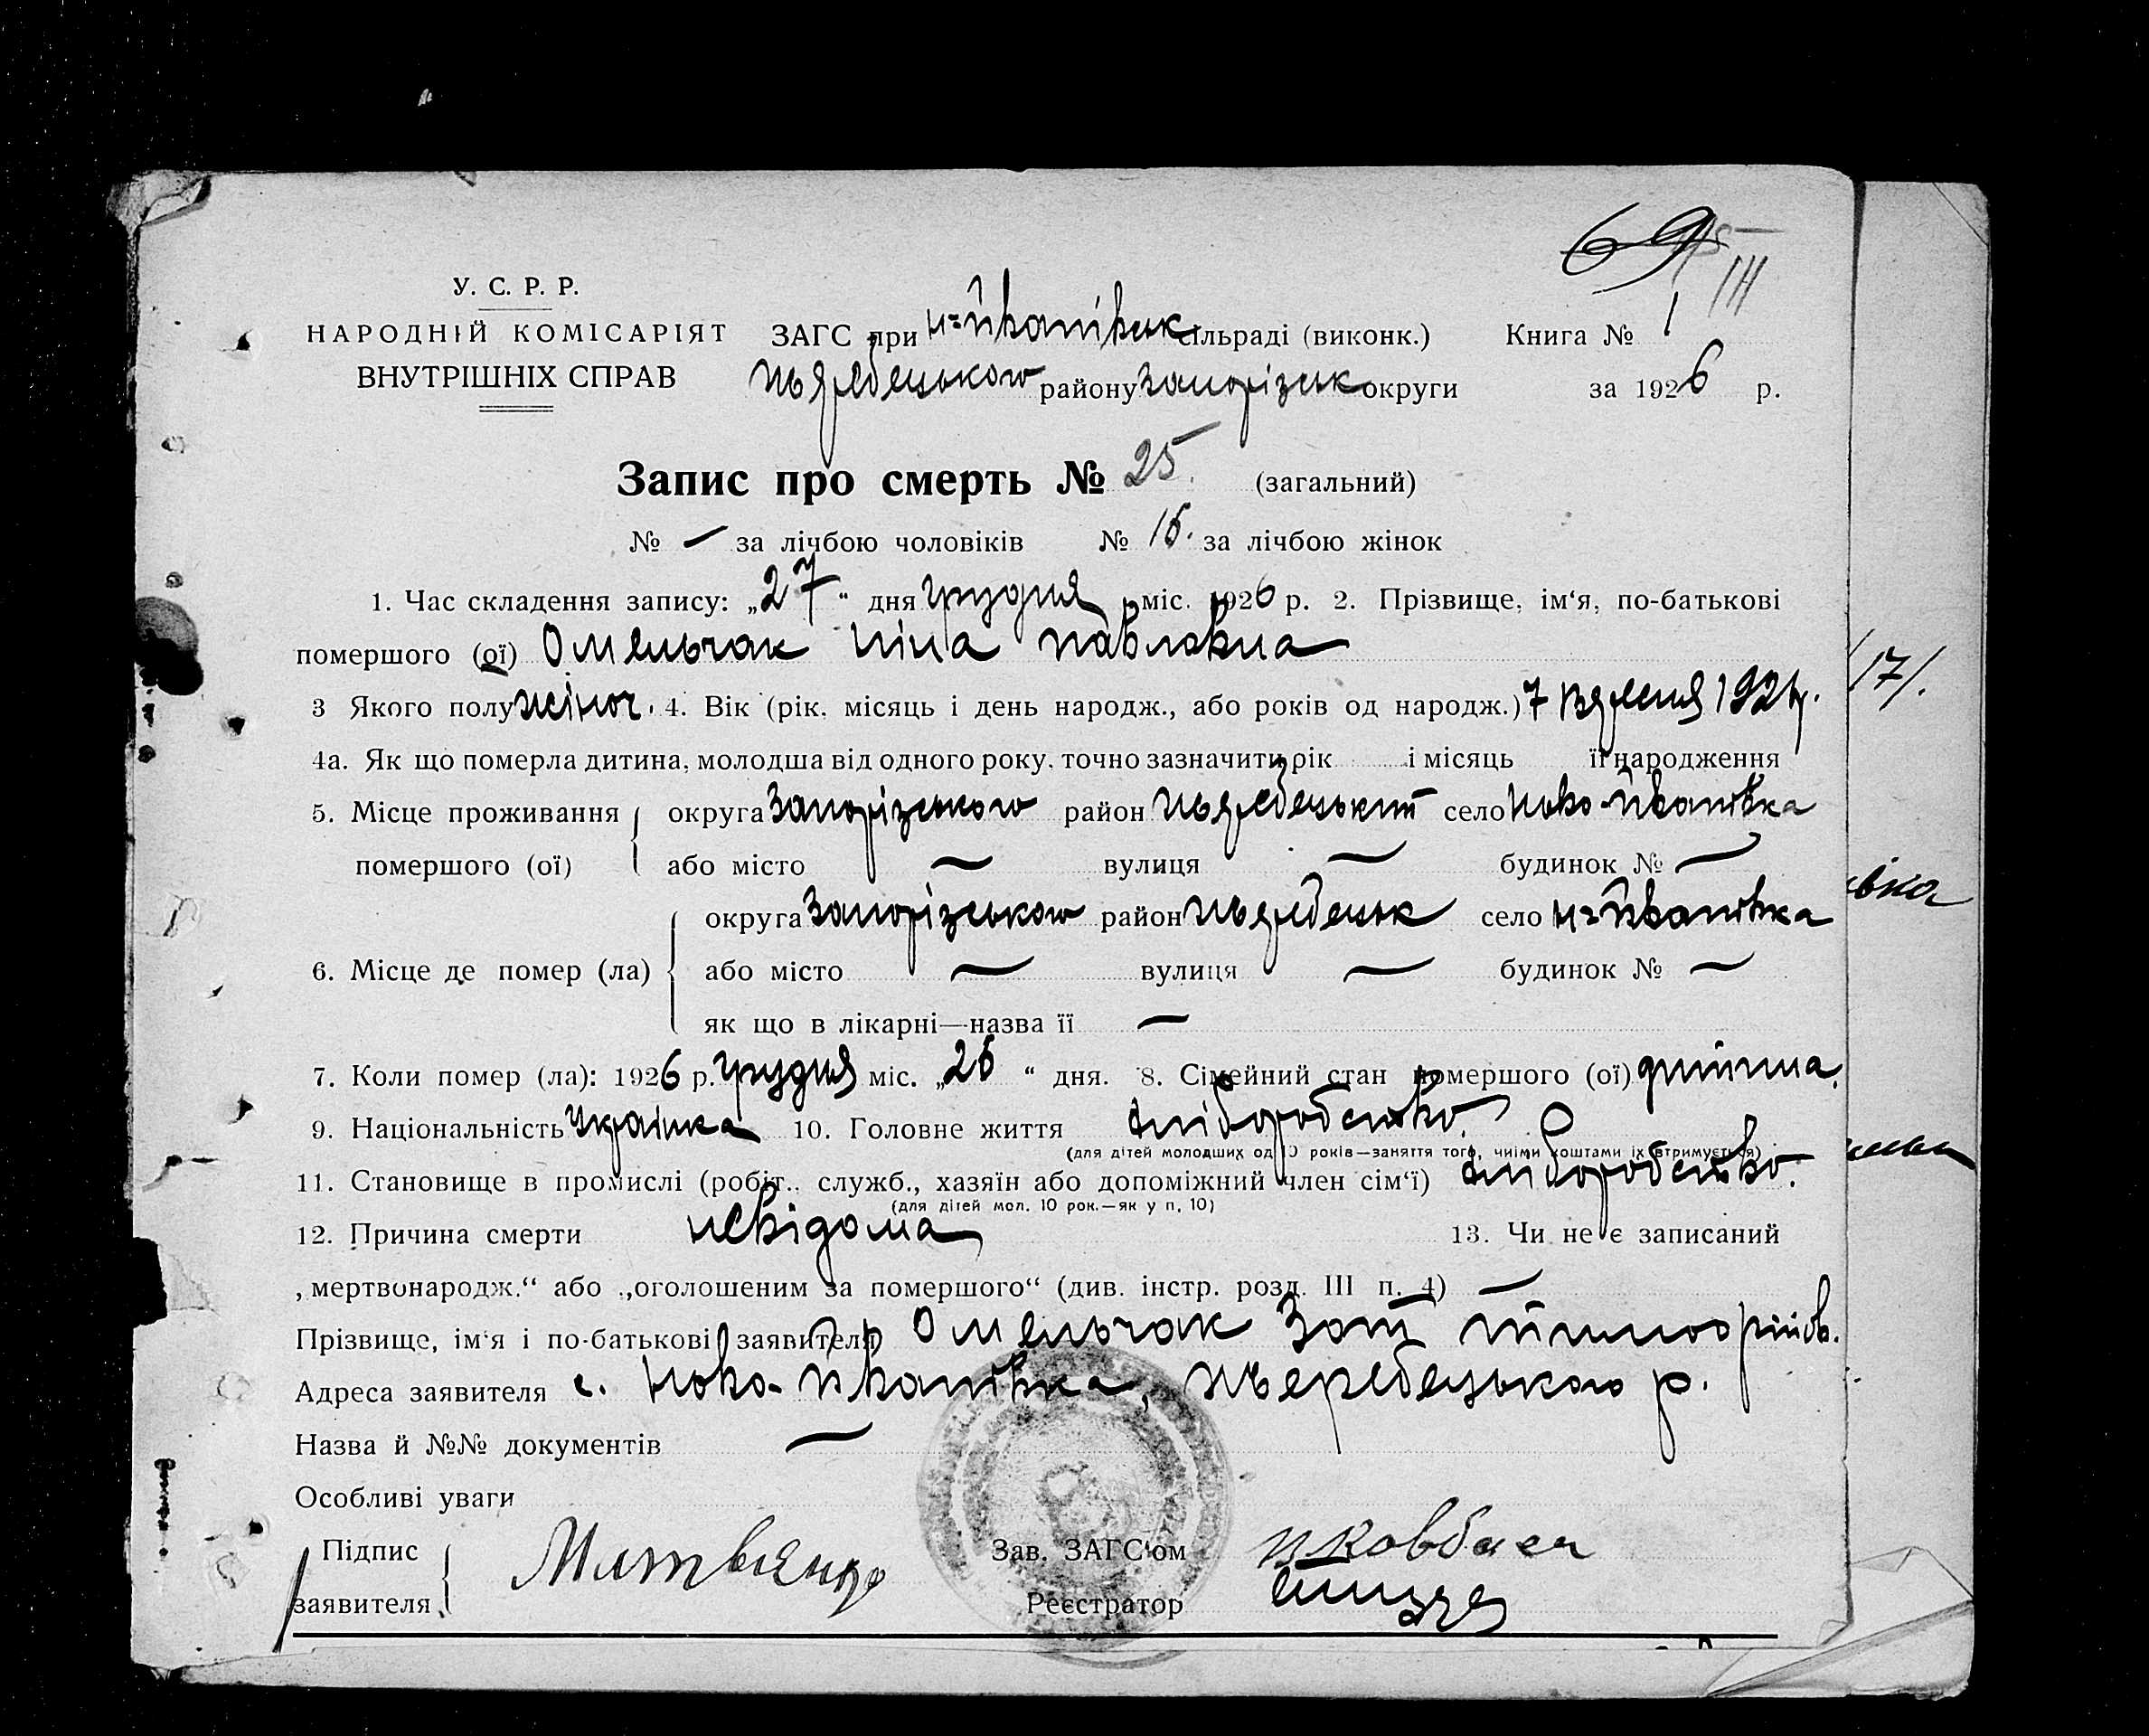 69
III
У. С. Р. Р.
НАРОДНІЙ КОМІСАРІЯТ
ВНУТРІШНІХ СПРАВ
ЗАГС при Н=Іванівськ сільраді (виконк.) Книга № 1
Жеребецького району Запорізськ округи за 1926 р.
Запис про смерть № 25. (загальний)
№ — за лічбою чоловіків № 15. за лічбою жінок
1. Час складення запису: „27“ дня грудня міс. 1926 р. 2. Прізвище, ім‘я, по-батькові
помершого (ої) Омельчак Ніна Павловна
3 Якого полу жіноч. 4. Вік (рік, місяць і день народж., або років од народж.) 7 вересня 192 р.
4а. Як що померла дитина, молодша від одного року, точно зазначити рік і місяць її народження
5. Місце проживання округа Запорізського район Жеребецький село Ново-Іванівка
помершого (ої) або місто — вулиця — будинок № —
округа Запорізського район Жеребецьк село Н=Іванівка
6. Місце де помер (ла) або місто — вулиця — будинок № —
як що в лікарні—назва її —
7. Коли помер (ла): 1926 р. грудня міс. „26“ дня. 8. Сімейний стан помершого (ої) дитина.
9. Національність Українка 10. Головне життя хліборобство.
(для дітей молодших од 10 років—заняття того, чиїми коштами їх втримується)
11. Становище в промислі (робіт., служб., хазяїн або допоміжний член сім‘ї) хліборобство.
(для дітей мол. 10 рок.—як у п. 10)
12. Причина смерти невідома 13. Чи не є записаний
„мертвонародж.“ або „оголошеним за помершого“ (див. інстр. розд. III п. 4) —
Прізвище, ім‘я і по-батькові заявителя гр Омельчак
Адреса заявителя с. Ново-Іванівка, Жеребецького р.
Назва й №№ документів —
Особливі уваги
Підпис
заявителя
Зав. ЗАГС‘ом
Реєстратор
17/.
івка